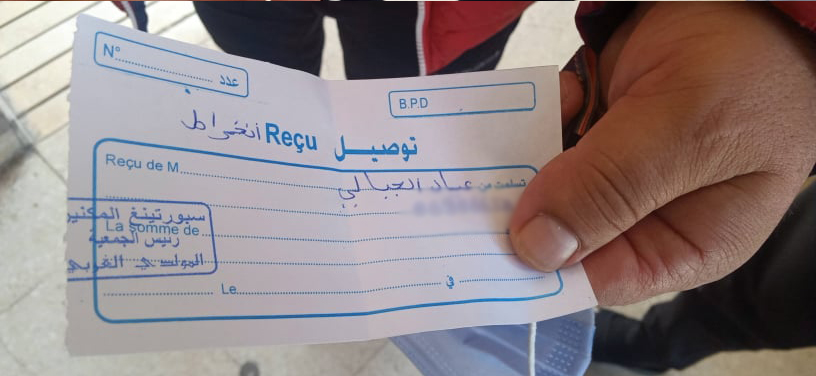 N°.............. عدد
B.P.D
توصيــل Reçu أنخراط
Reçu de M.............. تسلمت من عماد الجبالي
La somme de
سبورتينغ المكنين
رئيس الجمعية
المولدي الغربي
Le.............. في ..............